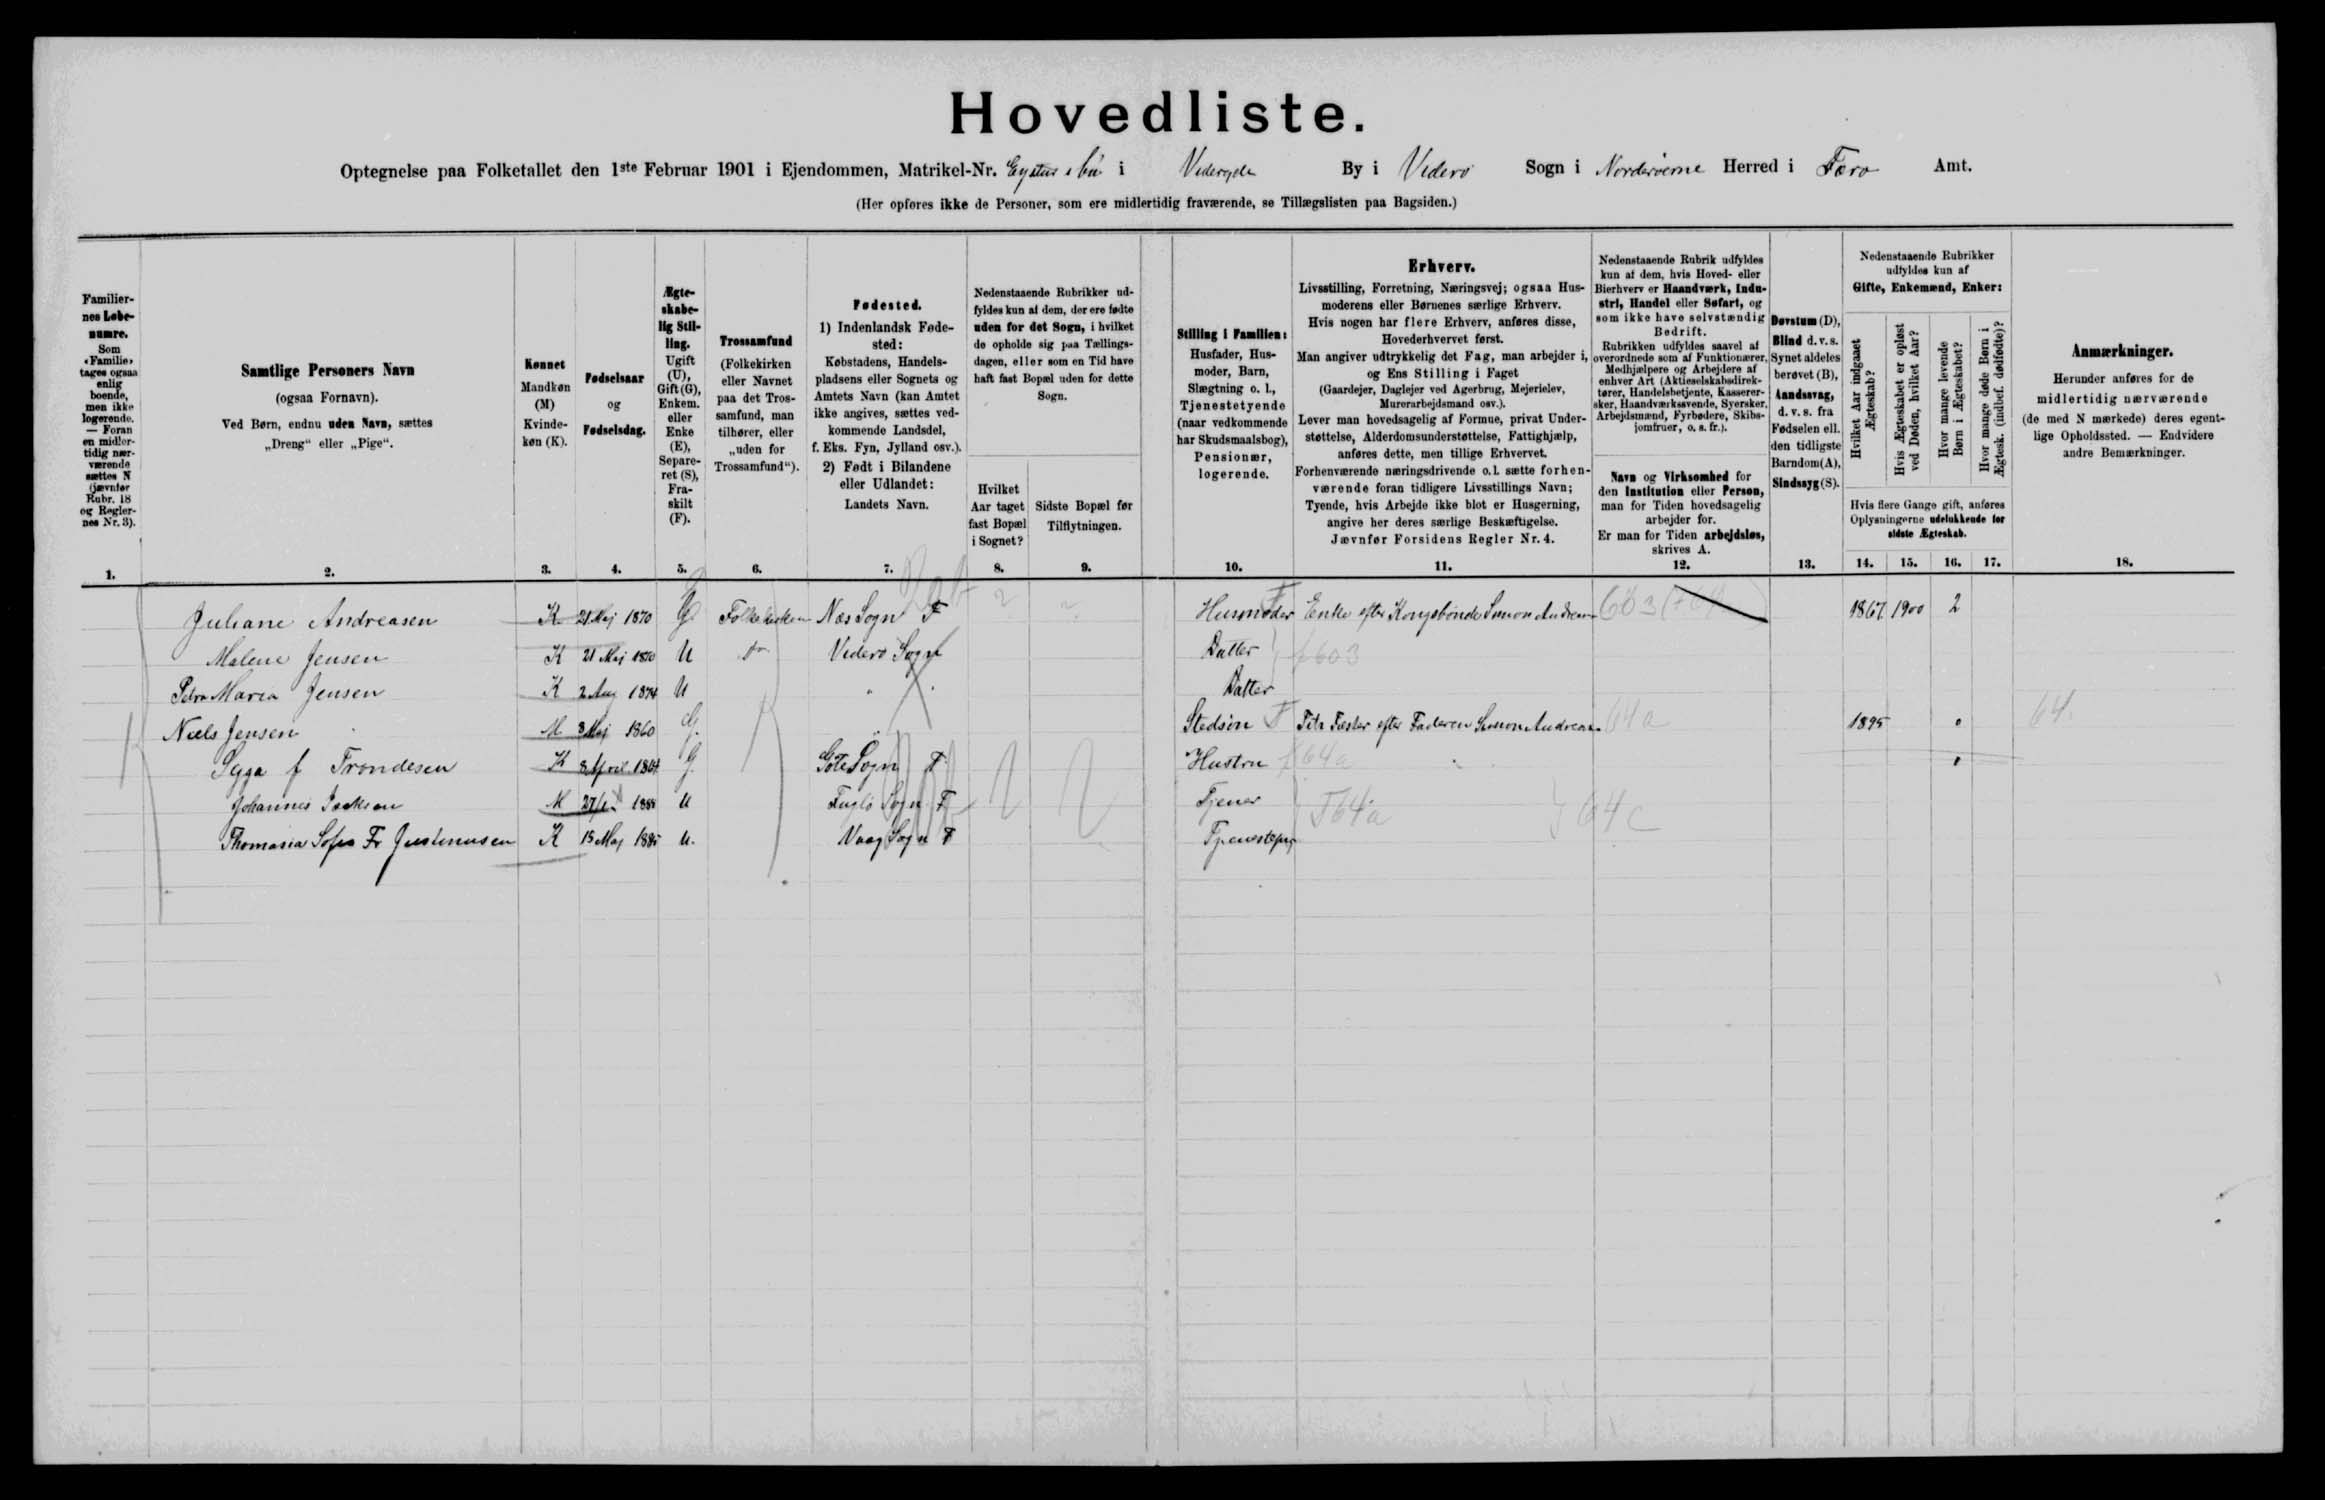 Hovedliste.
Optegnelse paa Folketallet den 1ste Februar 1901 i Ejendommen, Matrikel-Nr. i By i Viderø Sogn i Norderøerne Herred i Færø Amt.
(Her opføres ikke de Personer, som ere midlertidig fraværende, se Tillægslisten paa Bagsiden.)
Familier-
nes Løbe-
numre.
Som
«Familie»
tages ogsaa
enlig
boende,
men ikke
logerende.
— Foran
en midler-
tidig nær-
værende
sættes N
(jævnfør
Rubr. 18
og Regler-
nes Nr. 3).
1.
Samtlige Personers Navn
(ogsaa Fornavn).
Ved Børn, endnu uden Navn, sættes
„Dreng“ eller „Pige“.
2.
Kønnet
Mandkøn
(M)
Kvinde-
køn (K).
3.
Fødselsaar
og
Fødselsdag.
4.
Ægte-
skabe-
lig Stil-
ling.
Ugift
(U),
Gift (G),
Enkem.
eller
Enke
(E),
Separe-
ret (S),
Fra-
skilt
(F).
5.
Trossamfund
(Folkekirken
eller Navnet
paa det Tros-
samfund, man
tilhører, eller
„uden for
Trossamfund“).
6.
Fødested.
1) IndenlandskFøde-
sted:
Købstadens, Handels-
pladsens eller Sognets og
Amtets Navn (kan Amtet
ikke angives, sættes ved-
kommende Landsdel,
f. Eks. Fyn, Jylland osv.).
2) Født i Bilandene
eller Udlandet:
Landets Navn.
7.
Nedenstaaende Rubrikker ud-
fyldes kun af dem, der ere fødte
uden for det Sogn, i hvilket
de opholde sig paa Tællings-
dagen, eller som en Tid have
haft fast Bopæl uden for dette
Sogn.
Hvilket
Aar taget
fast Bopæl
i Sognet?
8.
Sidste Bopæl før
Tilflytningen.
9.
Stilling i Familien:
Husfader, Hus-
moder, Barn,
Slægtning o. l.,
Tjenestetyende
(naar vedkommende
har Skudsmaalsbog),
Pensionær,
logerende.
10.
Erhverv.
Livsstilling, Forretning, Næringsvej; ogsaa Hus-
moderens eller Børnenes særlige Erhverv.
Hvis nogen har flere Erhverv, anføres disse,
Hovederhvervet først.
Man angiver udtrykkelig det Fag, man arbejder i,
og Ens Stilling i Faget
(Gaardejer, Daglejer ved Agerbrug, Mejerielev,
Murerarbejdsmand osv.).
Lever man hovedsagelig af Formue, privat Under-
støttelse, Alderdomsunderstøttelse, Fattighjælp,
anføres dette, men tillige Erhvervet.
Forhenværende næringsdrivende o. l. sætte forhen-
værende foran tidligere Livsstillings Navn;
Tyende, hvis Arbejde ikke blot er Husgerning,
angive her deres særlige Beskæftigelse.
Jævnfør Forsidens Regler Nr. 4.
11.
Nedenstaaende Rubrik udfyldes
kun af dem, hvis Hoved- eller
Bierhverv er Haandværk, Indu-
stri, Handel eller Søfart, og
som ikke have selvstændig
Bedrift.
Rubrikken udfyldes saavel af
overordnede som af Funktionærer,
Medhjælpere og Arbejdere af
enhver Art (Aktieselskabsdirek-
tører, Handelsbetjente, Kasserer-
sker, Haandværkssvende, Syersker,
Arbejdsmænd, Fyrbødere, Skibs-
jomfruer, o. s. fr.).
Navn og Virksomhed for
den Institution eller Person,
man for Tiden hovedsagelig
arbejder for.
Er man for Tiden arbejdsløs,
skrives A.
12.
Døvstum (D),
Blind d. v. s.
Synet aldeles
berøvet (B),
Aandssvag,
d. v. s. fra
Fødselen ell.
den tidligste
Barndom (A),
Sindssyg (S).
13.
Nedenstaaende Rubrikker
udfyldes kun af
Gifte, Enkemænd, Enker:
Hvilket Aar indgaaet
Ægteskab?
Hvis Ægteskabet er opløst
ved Døden, hvilket Aar?
Hvor mange levende
Børn i Ægteskabet?
Hvor mange døde Børn i
Ægtesk. (indbef. dødfødte)?
Hvis flere Gange gift, anføres
Oplysningerne udelukkende for
sidste Ægteskab.
14. 15. 16. 17.
Anmærkninger.
Herunder anføres for de
midlertidig nærværende
(de med N mærkede) deres egent-
lige Opholdssted. — Endvidere
andre Bemærkninger.
18.
Juliane Andreasen K 21 Maj 1870 Folkekirken Næs Sogn F Husmoder Enke efter Kongsbonde Simon Andreasen 603 1867 1900 2
Malene Jensen K 21 Maj 1870 U do Viderø Sogn Datter 603
Petra Maria Jensen K 2 Aug 1874 U " " Datter
Niels Jensen M 3 Maj 1860 G. " Stedsøn F Fæster efter Faderen Simon Andreasen 64a 1895 0 64
f Trondesen K 8 April 1864 G. Gøte Sogn F Hustru 64a
Johannes M U Fuglø Sogn F Tjener 64a 64c
Thomasia Sofie Fr Justinusen K 13 Maj 1885 U. Vaag Sogn F Tjenestepig